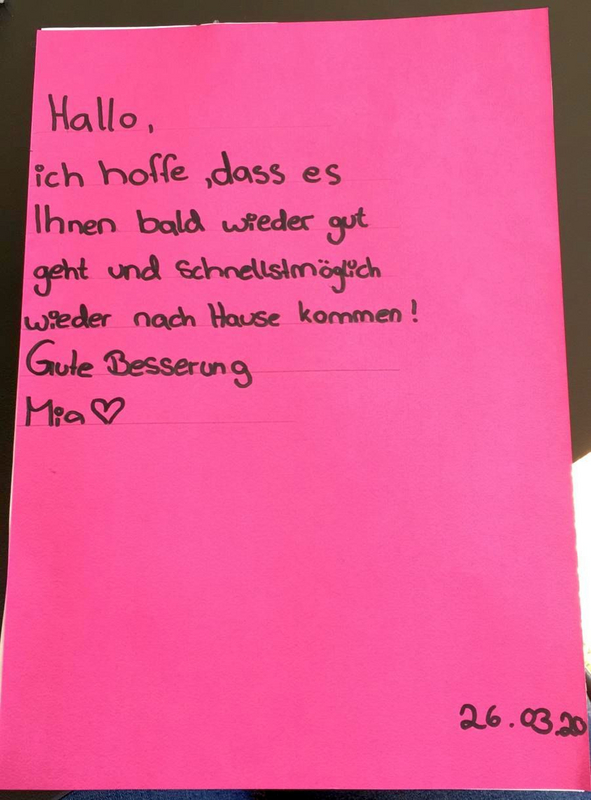 Hallo,
ich hoffe ,dass es
Ihnen bald wieder gut
geht und schnellstmöglich
wieder nach Hause kommen!
Gute Besserung
Mia♡
26.03.20